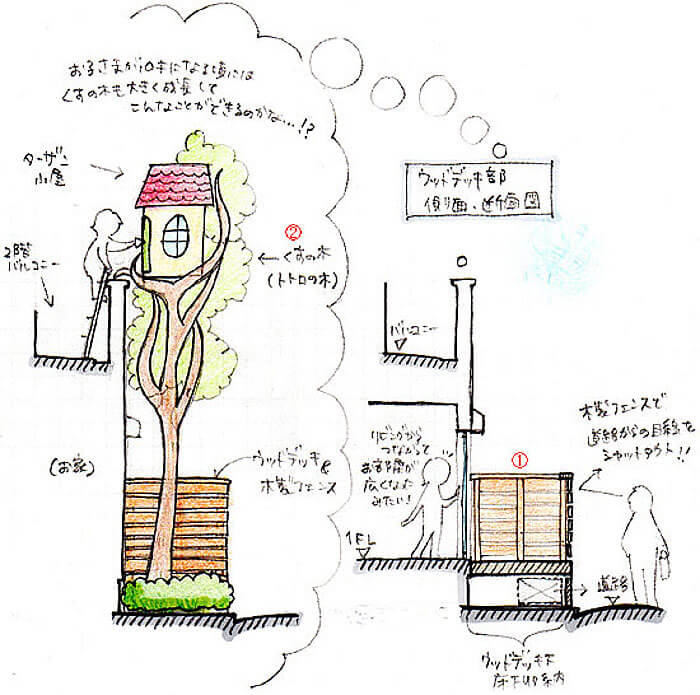 お子さまが10才になる頃には
くすの木も大きく成長して
こんなことができるのかな…!?
ターザン
小屋
2階
バルコニー
②
くすの木
(トトロの木)
(お家)
ウッドデッキ&
木製フェンス
ウッドデッキ部
側面・断面図
バルコニー
リビングから
つながってて
お部屋が
広くなった
みたい!
①
木製フェンスで
道路からの目線を
シャットアウト!!
1FL
道路
ウッドデッキ下
床下収納